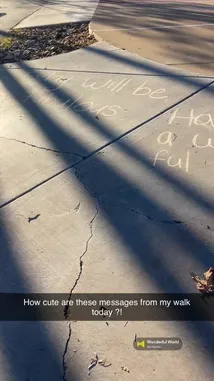 will be
Ha
a w
ful
How cute are these messages from my walk
today ?!
Wonderful World